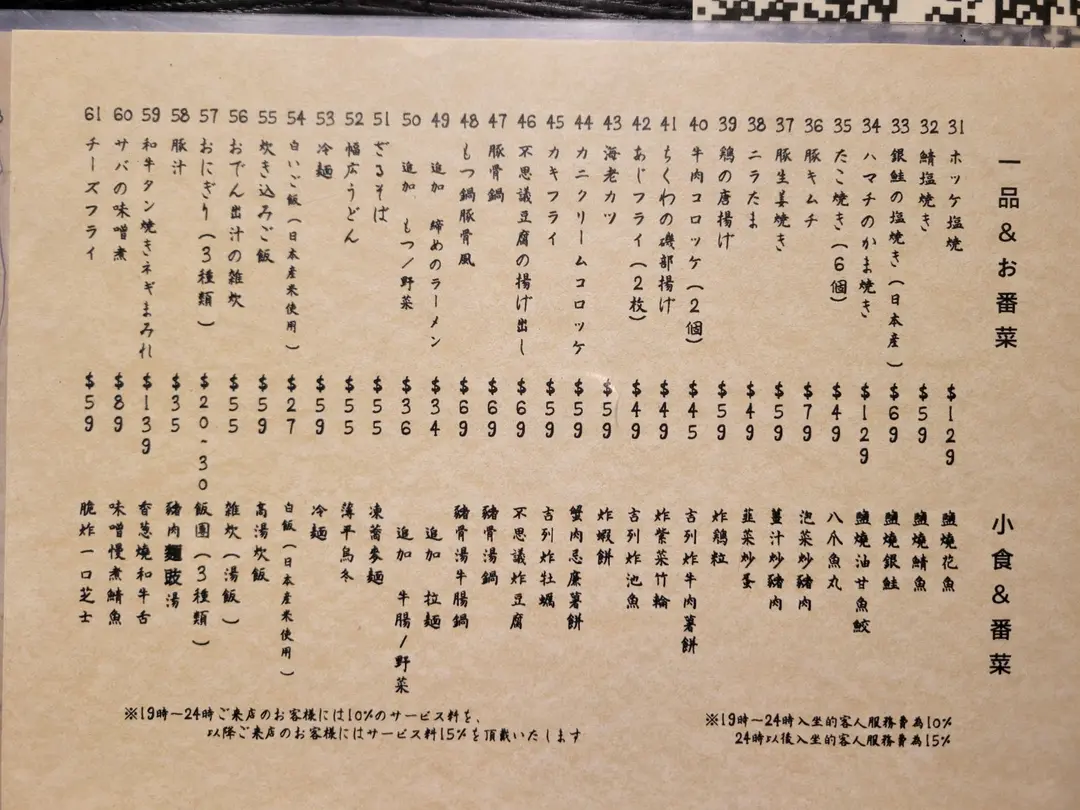 一品&お番菜 小食&番菜
31 ホッケ塩焼 $129 鹽燒花魚
32 鯖塩焼き $59 鹽燒鯖魚
33 銀鮭の塩焼き(日本産) $69 鹽燒銀鮭
34 ハマチのかま焼き $129 鹽燒油甘魚鮫
35 たこ焼き(6個) $49 八爪魚丸
36 豚キムチ $79 泡菜炒豬肉
37 豚生姜焼き $59 薑汁炒豬肉
38 ニラたま $49 韮菜炒蛋
39 鶏の唐揚げ $59 炸鶏粒
40 牛肉コロッケ(2個) $45 吉列炸牛肉薯餅
41 ちくわの磯部揚げ $49 炸紫菜竹輪
42 あじフライ(2枚) $49 吉列炸池魚
43 海老カツ $59 炸蝦餅
44 カニクリームコロッケ $59 蟹肉忌廉薯餅
45 カキフライ $59 吉列炸牡蠣
46 不思議豆腐の揚げ出し $69 不思議炸豆腐
47 豚骨鍋 $69 豬骨湯鍋
48 もつ鍋豚骨風 $69 豬骨湯牛腸鍋
49 追加 締めのラーメン $34 追加 拉麺
50 追加 もつ/野菜 $36 追加 牛腸/野菜
51 ざるそば $55 凍蕎麥麺
52 幅広うどん $55 薄平烏冬
53 冷麺 $59 冷麺
54 白いご飯(日本産米使用) $27 白飯(日本産米使用)
55 炊き込みご飯 $59 高湯炊飯
56 おでん出汁の雑炊 $55 雑炊(湯飯)
57 おにぎり(3種類) $20~30 飯團(3種類)
58 豚汁 $35 豬肉麵豉湯
59 和牛タン焼きネギまみれ $139 香葱燒和牛舌
60 サバの味噌煮 $89 味噌慢煮鯖魚
61 チーズフライ $59 脆炸一口芝士
※19時~24時ご来店のお客様には10%のサービス料を、
以降ご来店のお客様にはサービス料15%を頂戴いたします
※19時~24時入坐的客人服務費為10%
24時以後入坐的客人服務費為15%